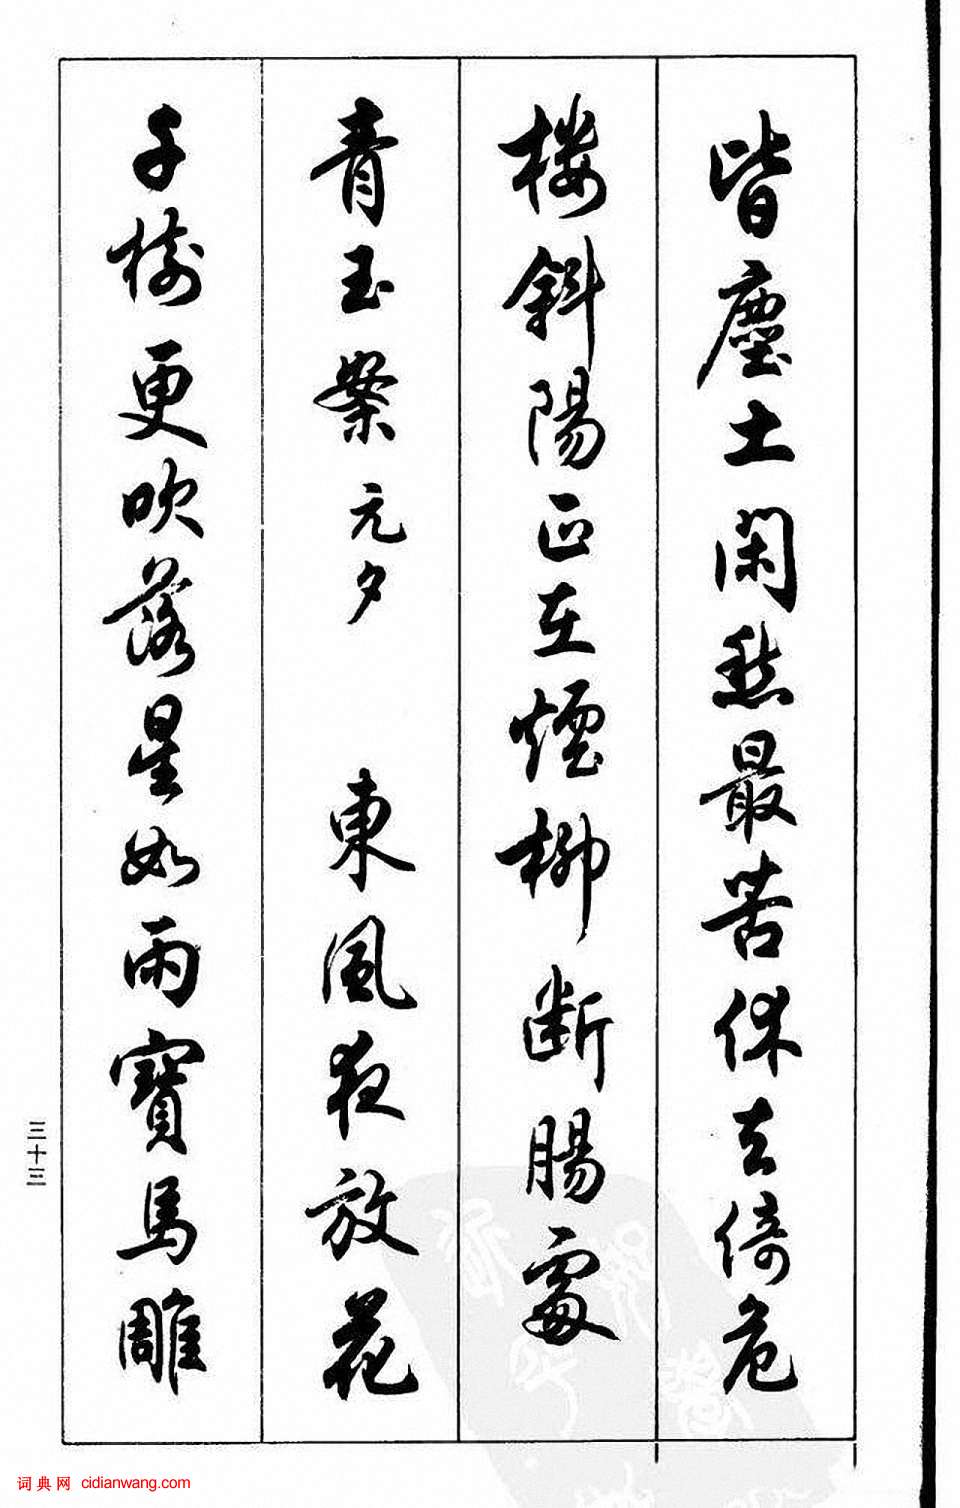 皆塵土閑愁最苦休去倚危
楼斜陽正在煙柳斷腸處
青玉案元夕 東風夜放花
千樹更吹落星如雨寶馬雕
三十三
词典网 cidianwang.com